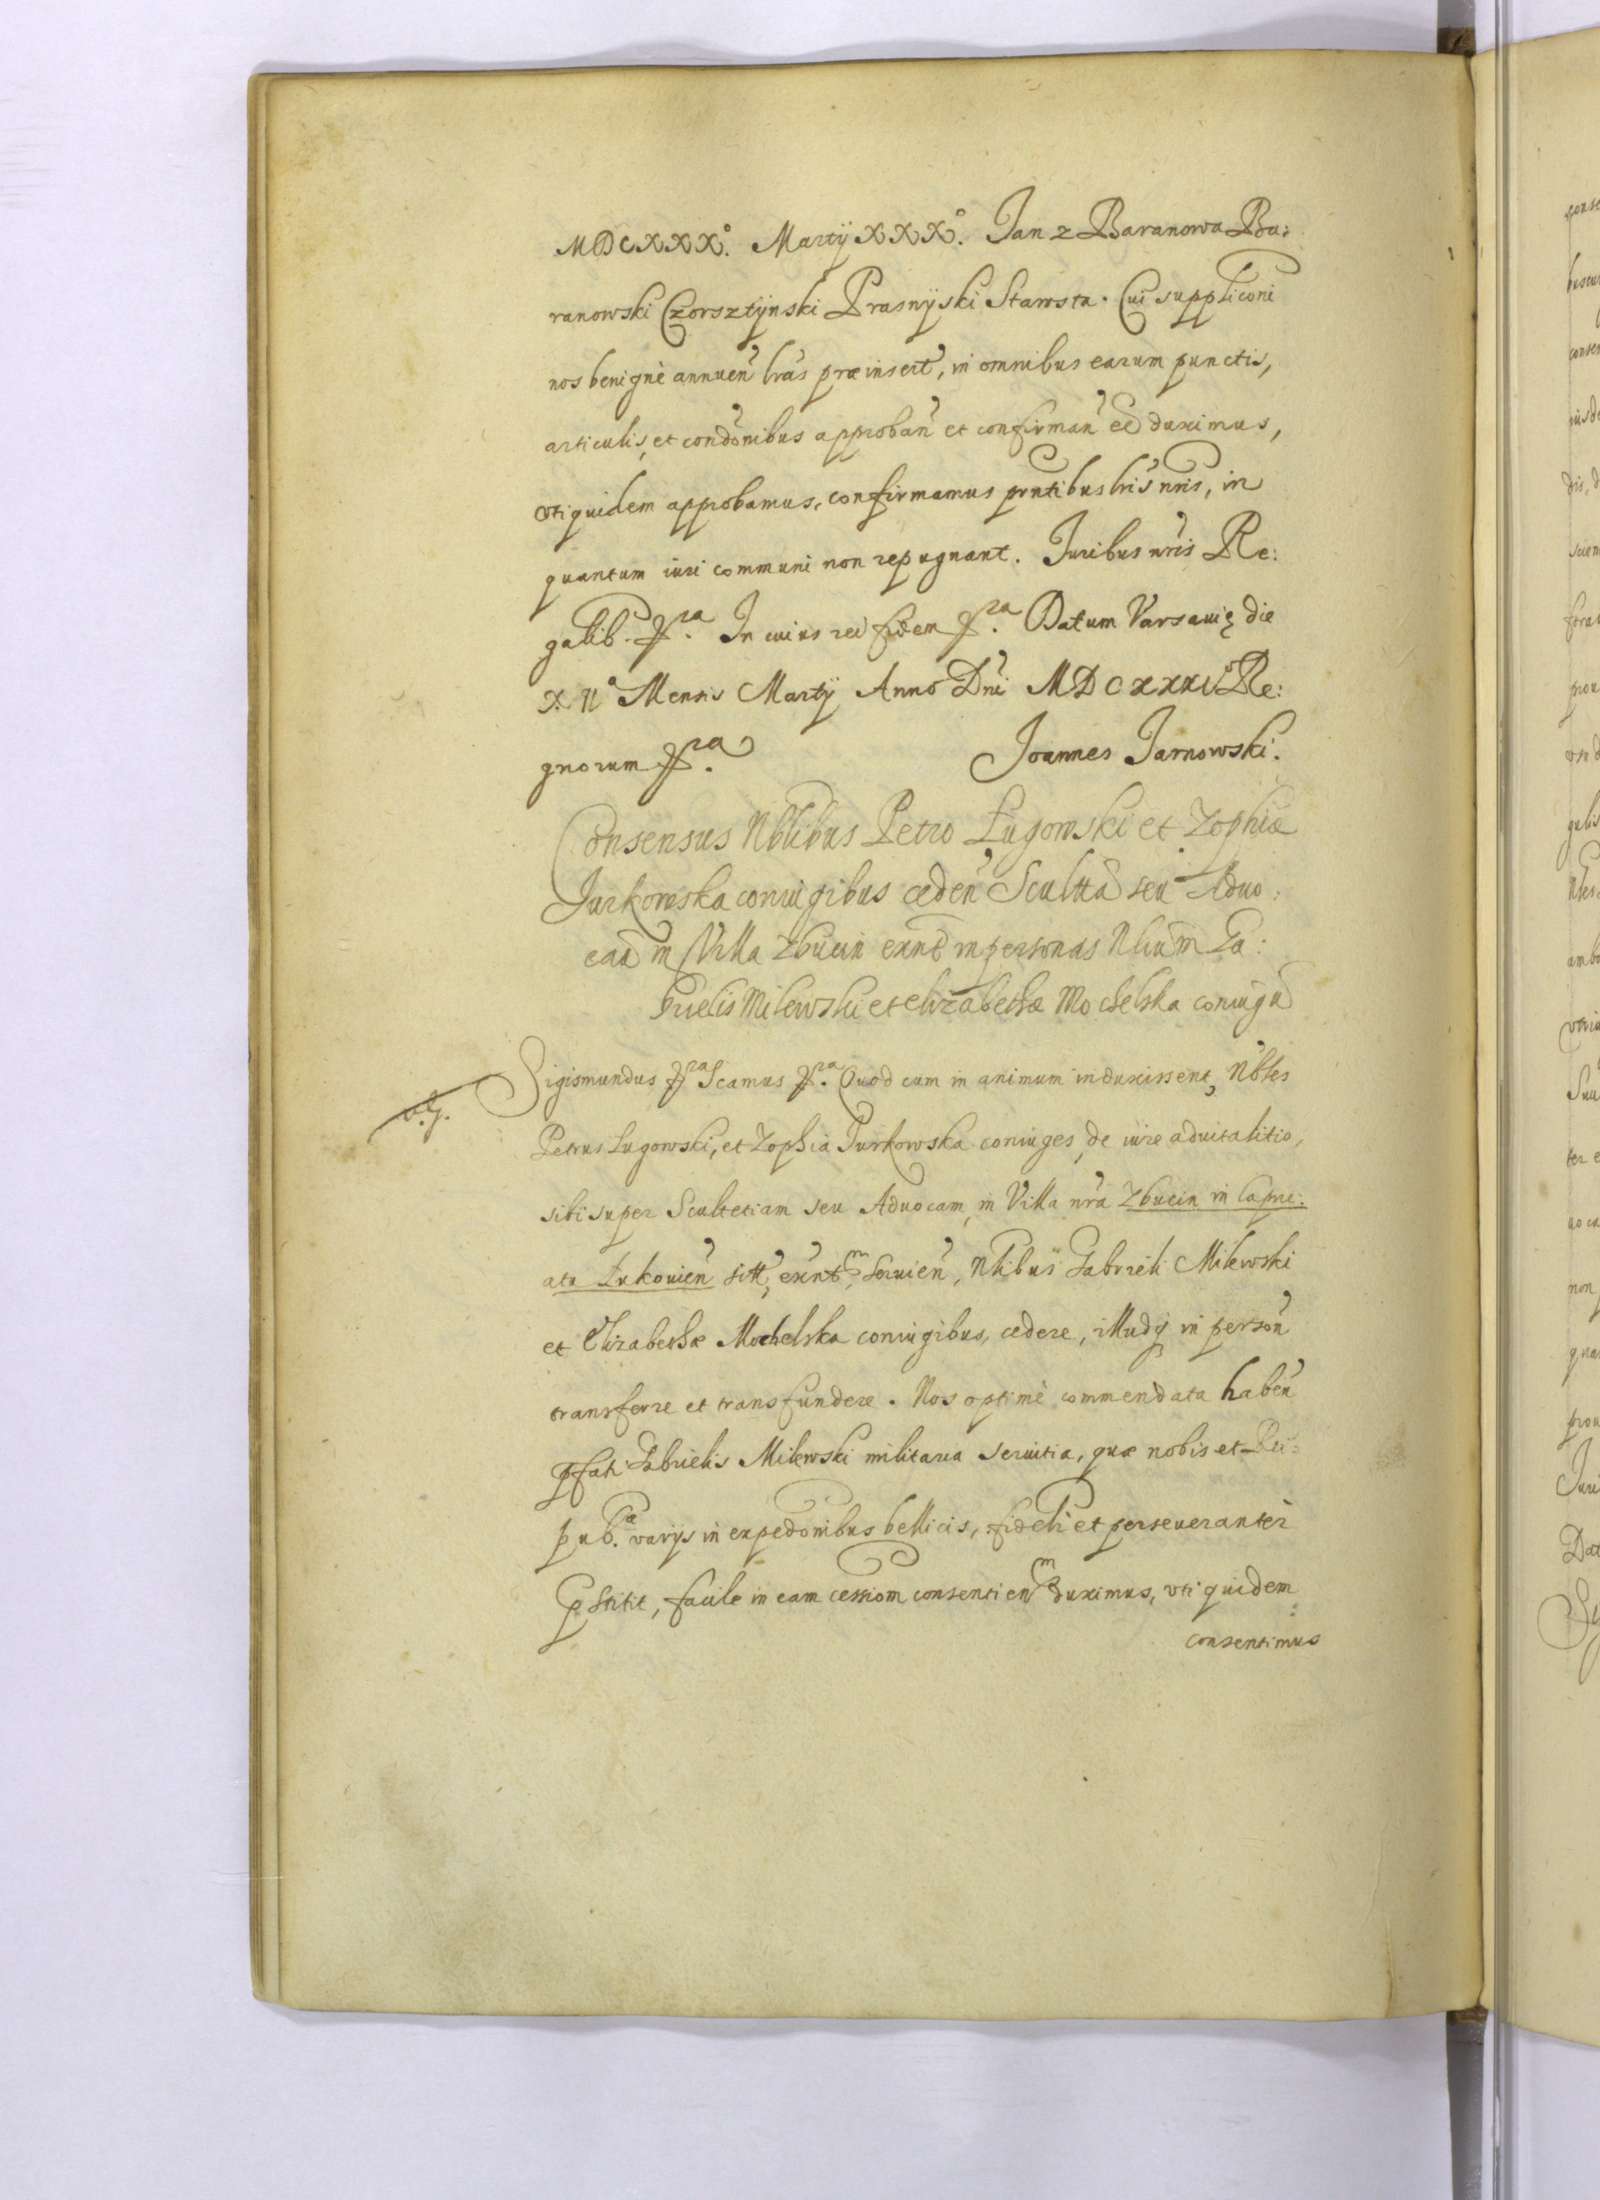 MDCXXX.° Martÿ XXX.° Jan z Baranowa Ba:
ranowski Czorsztÿnski Prasnÿski Starosta. Cui suppliconi
nos benignè annuen̄ lr̄as præinsert, in omnibus earum punctis,
articulis, et condōnibus approban̄ et confirman̄ eē duximus,
vti quidem approbamus, confirmamus prn̄tibus lr̄is nr̄is, in
quantum iuri communi non repugnant. Juribus nr̄is Re:
galib. &ra. In cuius rei fidem &ra. Datum Varsauię die
Mensis Martÿ Anno Dn̄i Re:
gnorum &ra. Joannes Jarnowski.
Consensus Nblibus Petro Ługowski et Zophiæ
Jurkowska coniugibus ceden̄ Sculttā seu Aduo:
cāā in Villa Zbucin in personas Nblium Ga:
brielis Milewski et elizabethæ Mochelska coniugū
v.g.
Sigismundus &ra Scamus &ra. Quod cum in animum induxissent, Nbles
Petrus Lugowski, et Zophia Jurkowska coniuges, de iure aduitalitio,
sibi super Scultetiam seu Aduocam, in Villa nr̄a Zbucin in Capne:
atu Lukouien̄ sitt, seruien̄, Nblibus Gabrieli Milewski
et Elizabethæ Mochelska coniugibus, cedere, illudq in person̄
transferre et transfundere. Nos optimè commendata haben̄
pfati Gabrielis Milewski militaria seruitia, quæ nobis et Rei:
pub.æ varijs in expedōnibus bellicis, fideli et perseueranter
pstitit, facile in eam cessiom consentien̄ duximus, vti quidem
consentimus